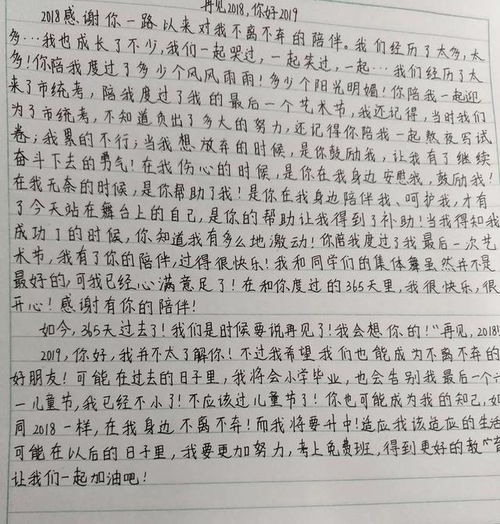 再见2018,你好2019
2018感谢你一路以来对我不离不弃的陪伴。我们经历了太多,太
多…我也成长了不少,我们一起哭过,一起笑过,一起…我们经历了太
多!你陪我度过了多少个风风雨雨!多少个阳光明媚!你陪我一起迎
来了市统考,陪我度过了我的最后一个艺术节,我还记得,当时我们
为了市统考,不知道负出了多大的努力,还记得你陪我一起熬夜写试
卷;我累的不行;当我想放弃的时候,是你鼓励我,让我有了继续
奋斗下去的勇气!在我伤心的时候,是你在我身边安慰我,鼓励我!
在我无奈的时候,是你帮助了我!是你在我身边陪伴我、呵护我,才有
了今天站在舞台上的自己,是你的帮助让我得到了补助!当我得知我
成功了的时候,你知道我有多么地激动!你陪我度过了我最后一次艺
术节,我有了你的陪伴,过得很快乐!我和同学们的集体舞虽然并不是
最好的,可我已经心满意足了!在和你度过的365天里,我很快乐,很
开心!感谢有你的陪伴!
如今,365天过去了!我们是时候要说再见了!我会想你的!"再见,2018!
2019,你好,我并不太了解你!不过我希望我们也能成为不离不弃的
好朋友!可能在过去的日子里,我将会小学毕业,也会告别我最后一个六
一儿童节,我已经不小了!不应该过儿童节了!你也可能成为我的知己,如
同2018一样,在我身边不离不弃!而我将要升中!适应我该适应的生活
可能在以后的日子里,我要更加努力,考上免费班,得到更好的教育
让我们一起加油吧!